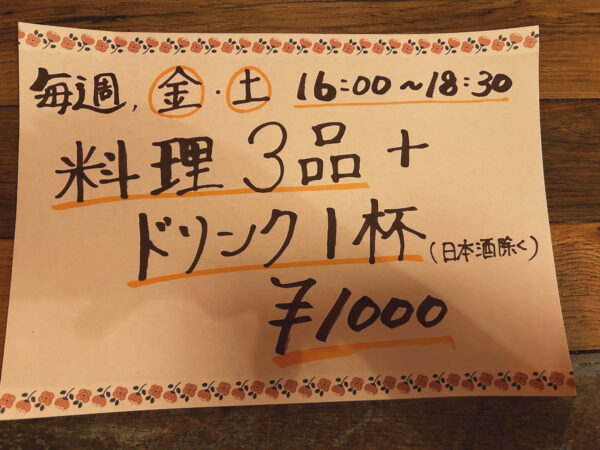 毎週,金・土 16:00~18:30
料理3品+
ドリンク1杯(日本酒除く)
¥1000